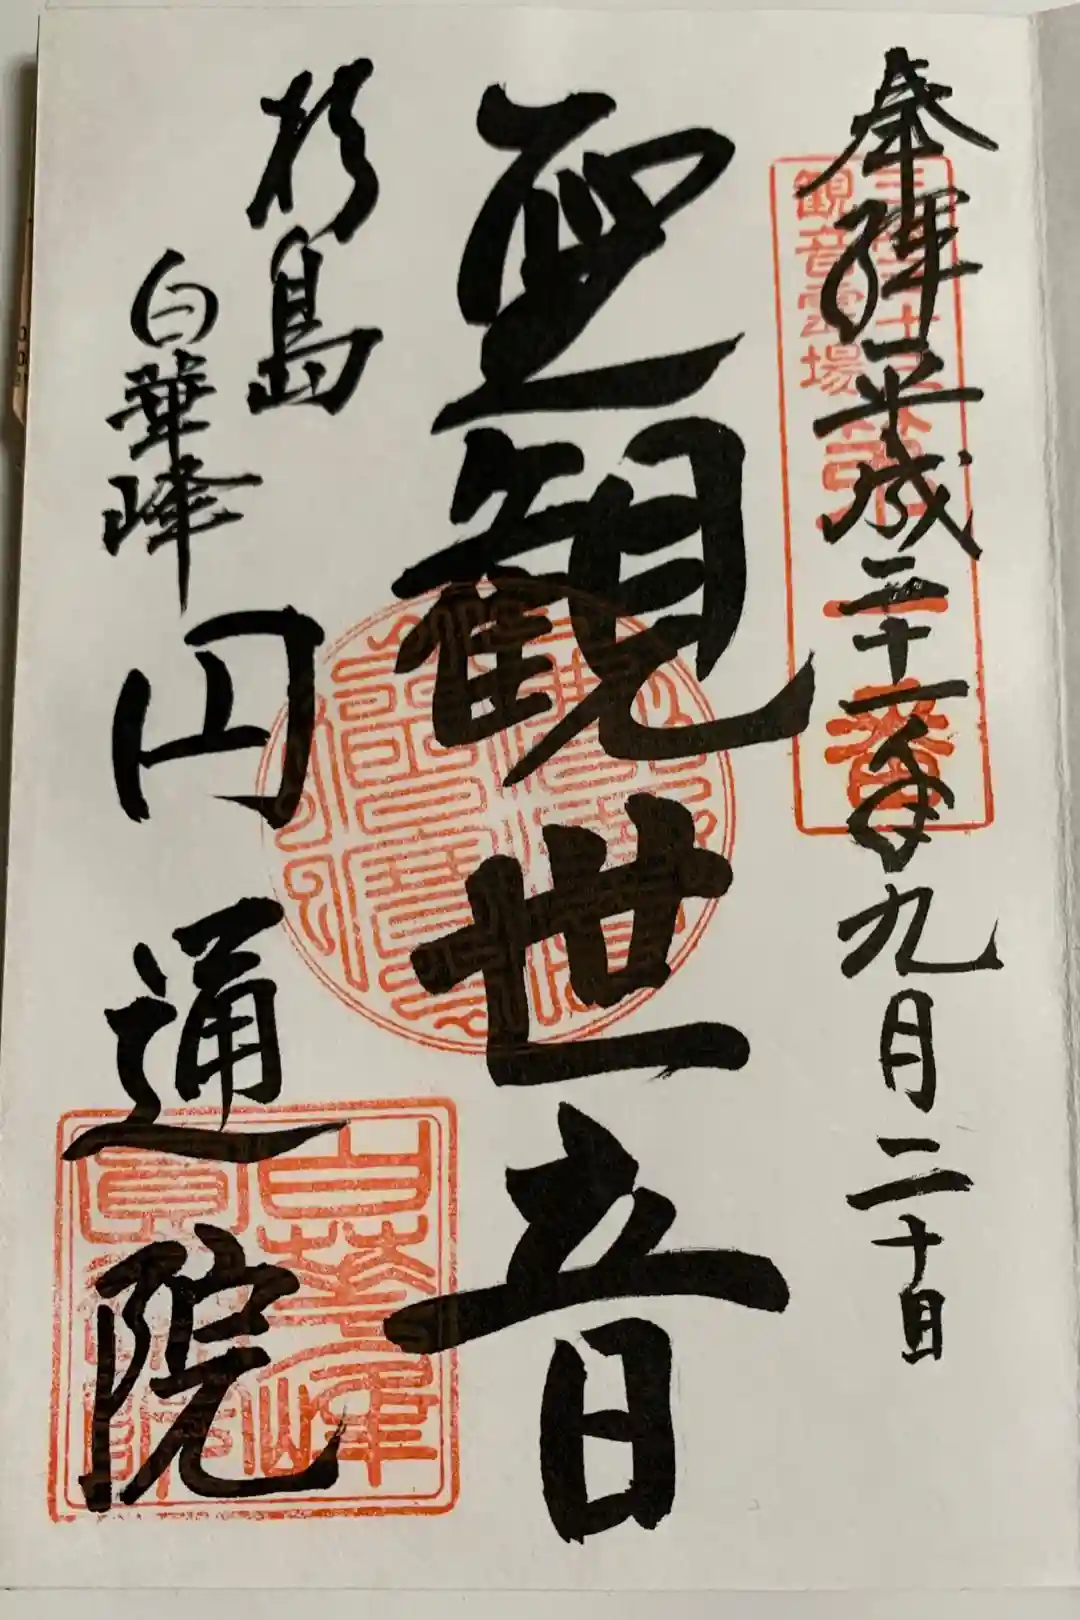 奉拝 平成二十一年九月二十日
観音霊場
聖観世音
松島
白華峰
円通院
白華峰